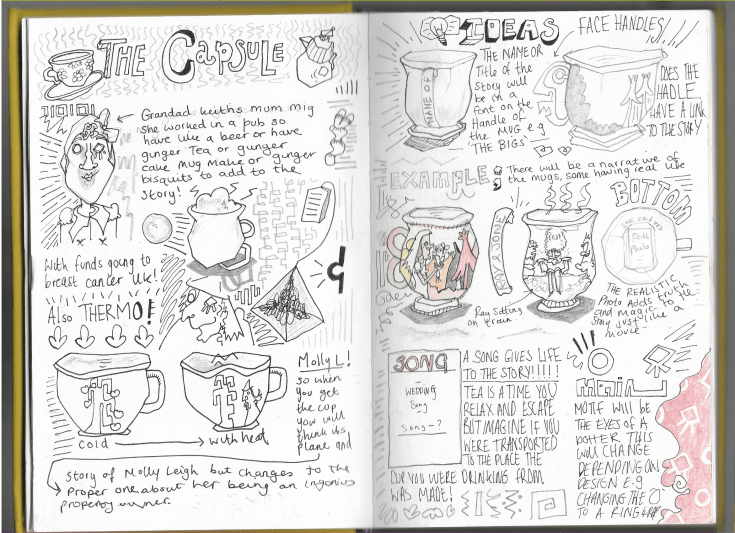 THE CAPSULE
Grandad keiths mum mig
She worked in a pub so
have like a beer or have
gunger Tea or gunger
cake mug Make or gunger
bisquits to add to the
Story!
With funds going to
breast cancer UK!
Also THERMO!
Molly L!
so when
you get
the cup
you will
think its
plane and
Cold
with heat
Story of Molly Leigh but changes to the
proper one about her being an ingenius
property owner.
IDEAS
FACE HANDLES!
THE NAME OR
Title of the
Story will
be in a
font on the
Handle of
the MUG e.g
'THE BIGS'
NAME OF
DOES THE
HADLE
HAVE A LINK
TO THE STORY
EXAMPLE:
There will be a narrative of
the mugs, some having real life
BOTTOM
RAY & JOYNE
Ray Sitting
on train
REAL
Photo
THE REALISTIC
Photo Adds truth
and magic to the
story just like a
movie
SONG
WEDDING
Song
Song-?
A SONG GIVES LIFE
TO THE STORY!!!!!
TEA IS A TIME YOU
RELAX AND ESCAPE
BUT IMAGINE IF YOU
WERE TRANSPORTED
TO THE PLACE THE
CUP YOU WERE DRINKING FROM
WAS MADE!
main
MOTIF WILL BE
THE EYES OF A
POTTER THIS
will CHANGE
DEPENDING ON
DESIGN E.G
CHANGING THE O
TO A RING